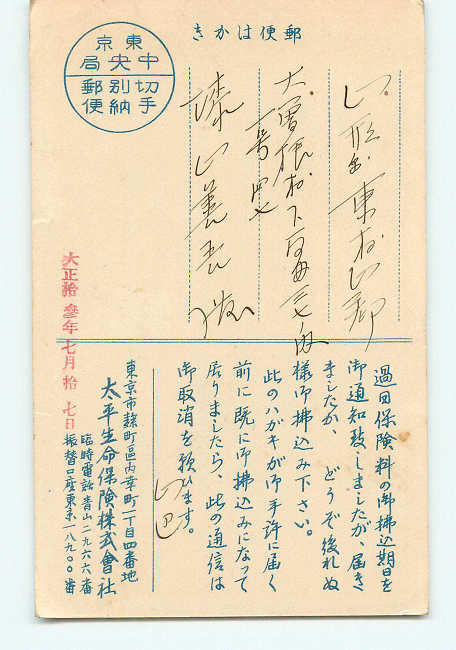 郵便はかき
東京
中央局
切手
別納
郵便
山形縣東村山郡
大曽根村
様
大正拾參年七月拾七日
過日保険料の御拂込期日を
御通知致しましたが、届き
ましたか、どうぞ後れぬ
様御拂込み下さい。
此のハガキが御手許に届く
前に既に御拂込みになって
居りましたら、此の通信は
御取消を願ひます。
東京市麹町區内幸町一丁目四番地
太平生命保険株式會社
臨時電話青山二九六六番
振替口座東京一八九〇〇番